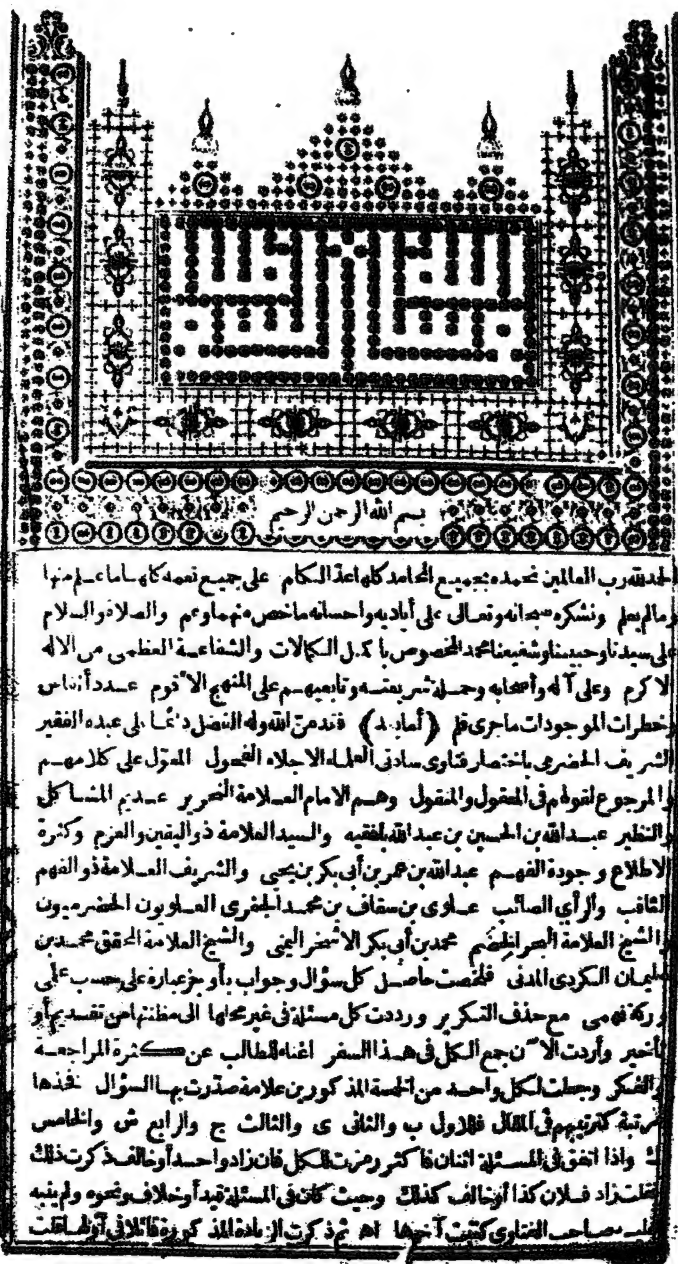 بسم الله الرحمن الرحيم
الحمد لله رب العالمين نحمده بجميع المحامد كلها عد الكلام على جميع نعمه كلها ما علم منها
وما لم يعلم ونشكره سبحانه وتعالى على أياديه واحسانه ما خص منهما وعم والصلاة والسلام
على سيدنا وحبيبنا وشفيعنا محمد المخصوص بأكمل الكمالات والشفاعة العظمى من الاله
الاكرم وعلى آله وأصحابه وحملة شريعته وتابعيهم على المنهج الاقوم عدد أنفاس
وخطرات الموجودات ما جرى قلم (أما بعد) فقد من الله وله الفضل دائما على عبده الفقير
الشريف الحضرمى باختصار فتاوى سادتى العلماء الاجلاء الفحول المعول على كلامهم
والمرجوع لقولهم فى المعقول والمنقول وهم الامام العلامة النحرير عديم المشاكل
والنظير عبد الله بن الحسين بن عبد الله بلفقيه والسيد العلامة ذو اليقين والعزم وكثرة
الاطلاع وجودة الفهم عبد الله بن عمر بن أبى بكر بن يحيى والشريف العلامة ذو الفهم
الثاقب والرأى الصائب علوى بن سقاف بن محمد الجفرى العلويون الحضرميون
والشيخ العلامة البحر الخضم محمد بن أبى بكر الاشخر اليمنى والشيخ العلامة المحقق محمد بن
سليمان الكردى المدنى فلخصت حاصل كل سؤال وجواب بأوجز عبارة على حسب علمى
وركة فهمى مع حذف التكرير ورددت كل مسئلة فى غير محلها الى مظنتها من تقديم أو
تأخير وأردت الآن جمع الكل فى هذا السفر اغناء للطالب عن كثرة المراجعة
والفكر وجعلت لكل واحد من الخمسة المذكورين علامة صدرت بها السؤال فخذها
مرتبة كترتيبهم فى المقال فللاول ب والثانى ى والثالث ج والرابع ش والخامس
ك واذا اتفق فى المسئلة اثنان فاكثر رمزت للكل فان زاد واحد أو خالف ذكرت ذلك
فقلت زاد فلان كذا أو خالف كذلك وحيث كان فى المسئلة قيد أو خلاف ونحوه ولم ينبه
عليه صاحب الفتاوى كتبت آخرها اهـ ثم ذكرت الزيادة المذكورة قائلا فى أولها قلت